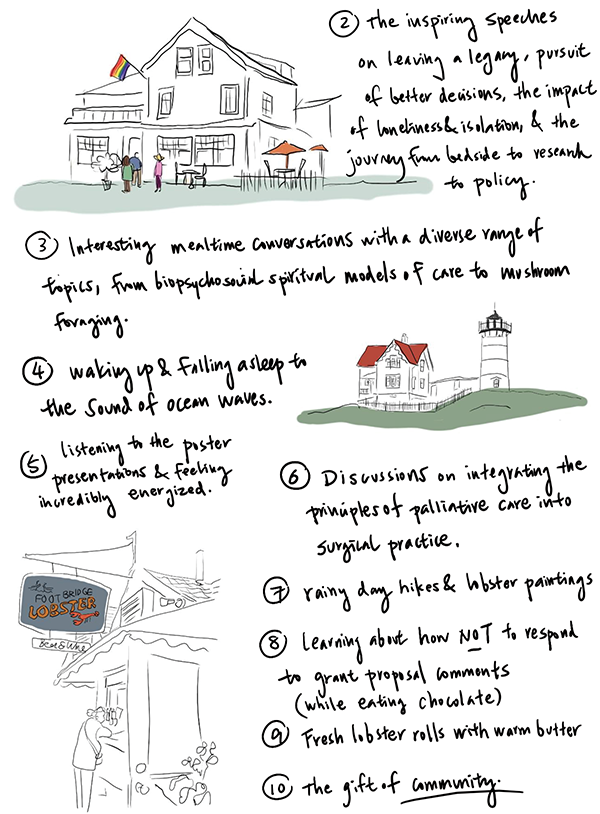 ② The inspiring speeches
on leaving a legacy, pursuit
of better decisions, the impact
of loneliness & isolation, & the
journey from bedside to research
to policy.
③ Interesting mealtime conversations with a diverse range of
topics, from biopsychosocial spiritual models of care to mushroom
foraging.
④ waking up & falling asleep to
the sound of ocean waves.
⑤ listening to the poster
presentations & feeling
incredibly energized.
⑥ Discussions on integrating the
principles of palliative care into
surgical practice.
FOOTBRIDGE
LOBSTER
Beer & Wine
⑦ rainy day hikes & lobster paintings
⑧ Learning about how NOT to respond
to grant proposal comments
(while eating chocolate)
⑨ Fresh lobster rolls with warm butter
⑩ The gift of community.